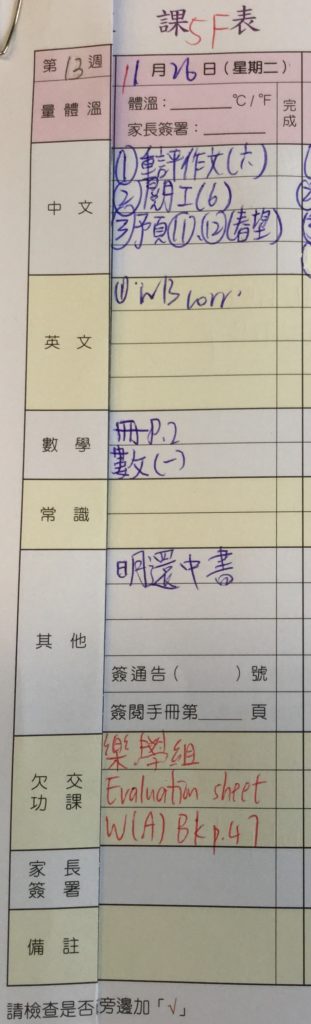 課5F表
第13週 11月26日(星期二)
量體溫 體溫：______ °C/°F 完成
家長簽署：______
中文 ①重評作文(六)
②閱工(6)
③予頁⑪、⑫(春望)
英文 ①WB corr.
數學 冊P.2
數文(一)
常識
其他 明還中書
簽通告( )號
簽閱手冊第____頁
欠交功課 樂學組
Evaluation sheet
W(A) Bk p.47
家長簽署
備註
請檢查是否 旁邊加「√」